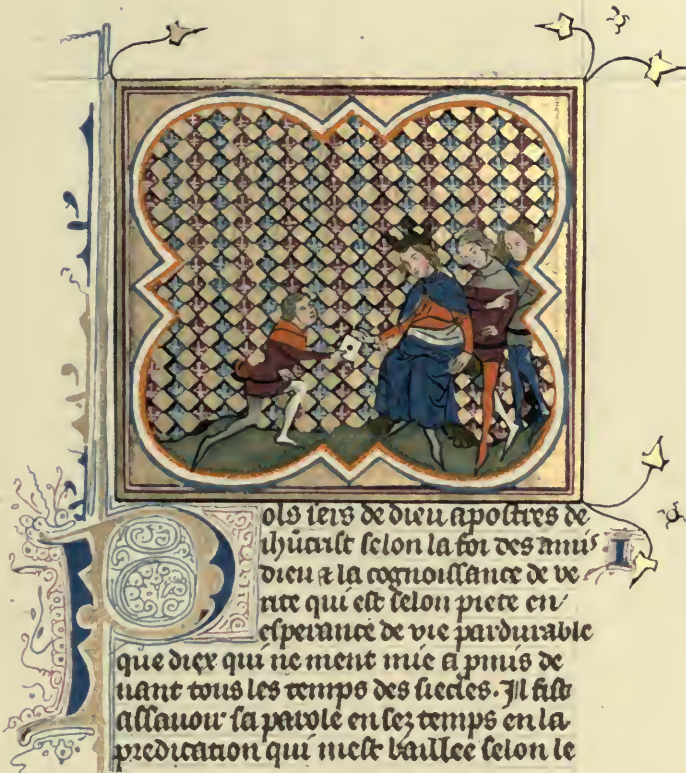 Pols sers de dieu apostres de
ihūcrist selon la foi des amis
dieu ⁊ la cognoissance de ve I
rite qui est selon piete en
esperance de vie pardurable
que diex qui ne ment mie a pmis de
uant tous les temps des siecles. Il fist
assauoir sa parole en sez temps en la
predication qui mest baillee selon le